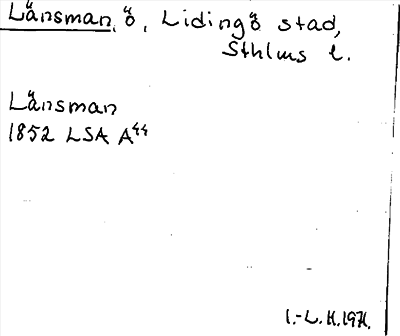 Länsman, ö, Lidingö stad,
Sthlms l.
Länsman
1852 LSA A44
I.-L.H.1971.